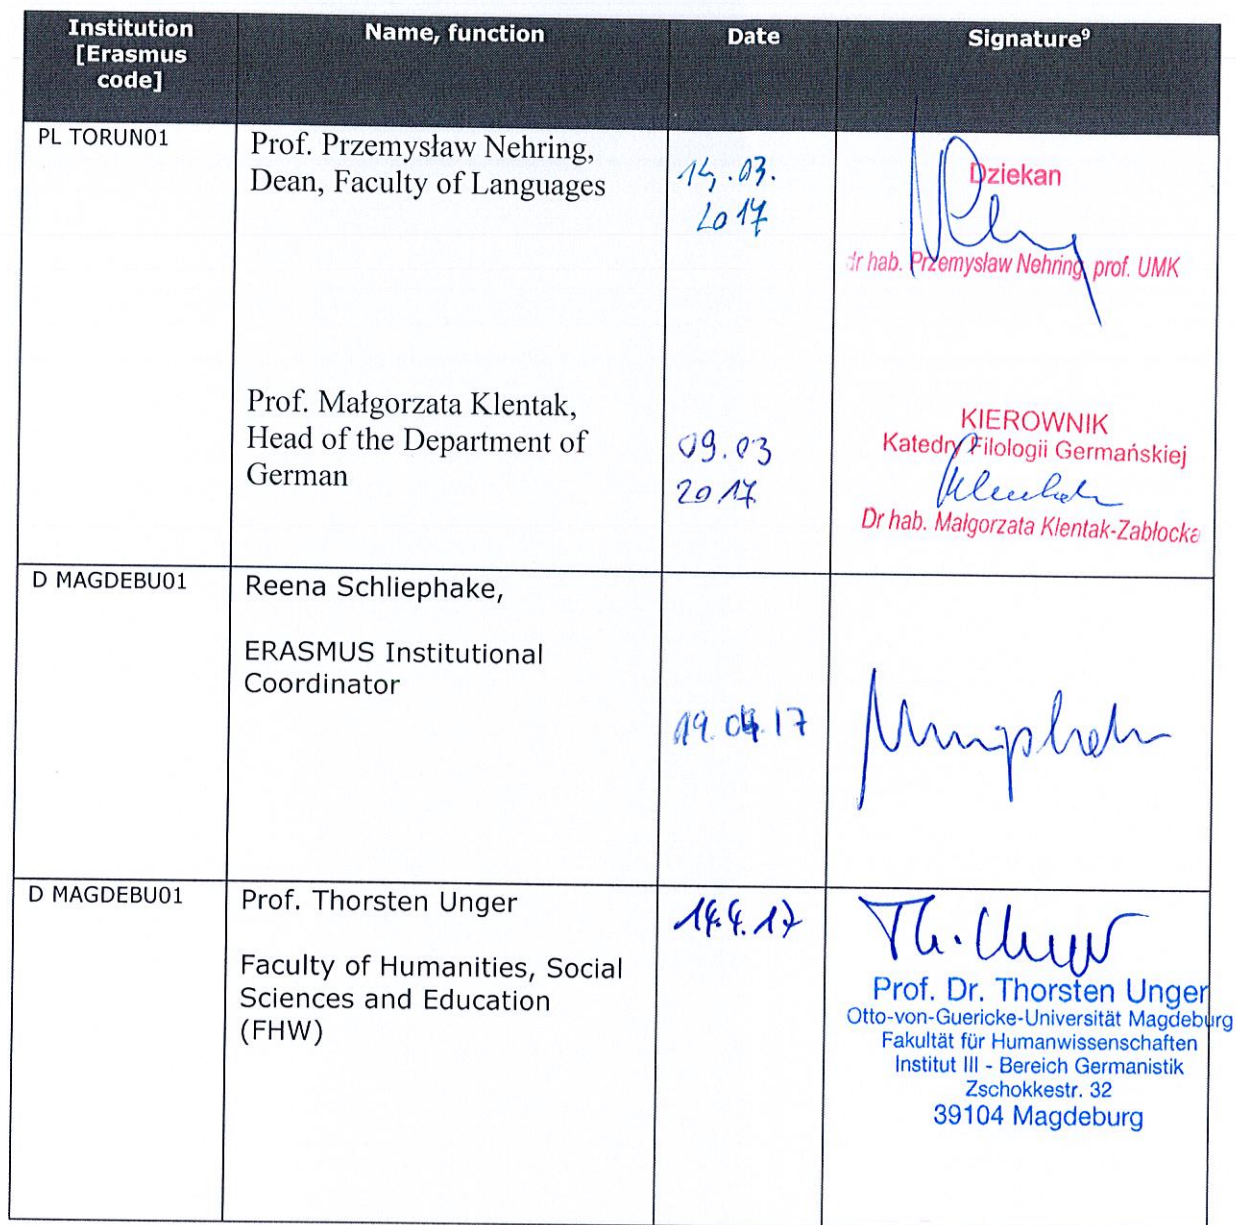 Institution
[Erasmus
code]
Name, function
Date
Signature⁹
PL TORUN01
Prof. Przemysław Nehring,
Dean, Faculty of Languages
14.03.
2017
Dziekan
dr hab. Przemysław Nehring, prof. UMK
Prof. Małgorzata Klentak,
Head of the Department of
German
09.03
2017
KIEROWNIK
Katedry Filologii Germańskiej
Dr hab. Małgorzata Klentak-Zabłocka
D MAGDEBU01
Reena Schliephake,
ERASMUS Institutional
Coordinator
19.04.17
D MAGDEBU01
Prof. Thorsten Unger
Faculty of Humanities, Social
Sciences and Education
(FHW)
14.4.17
Th. Unger
Prof. Dr. Thorsten Unger
Otto-von-Guericke-Universität Magdeburg
Fakultät für Humanwissenschaften
Institut III - Bereich Germanistik
Zschokkestr. 32
39104 Magdeburg